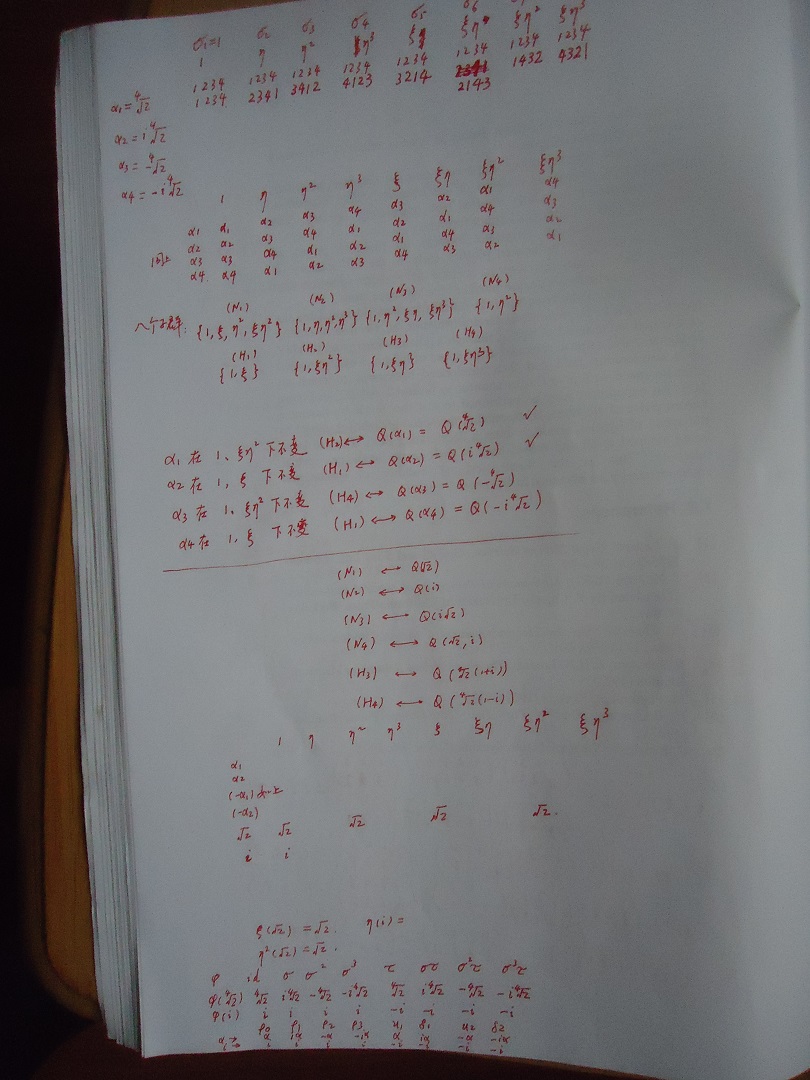 σ₁=1 σ₂ σ₃ σ₄ σ₅ σ₆
1 η η² ξη³ ξη ξη⁴ ξη² ξη³
1234 1234 1234 1234 1234 1234 1234 1234
1234 2341 3412 4123 3214 2143 1432 4321
α₁=⁴√2
α₂=i⁴√2
α₃=-⁴√2
α₄=-i⁴√2
1 η η² η³ ξ ξη ξη² ξη³
α₁ α₁ α₂ α₃ α₄ α₃ α₂ α₁ α₄
α₂ α₂ α₃ α₄ α₁ α₂ α₁ α₄ α₃
同上 α₃ α₃ α₄ α₁ α₂ α₁ α₄ α₃ α₂
α₄ α₄ α₁ α₂ α₃ α₄ α₃ α₂ α₁
(N₁) (N₂) (N₃) (N₄)
八个子群: {1,ξ,η²,ξη²} {1,η,η²,η³} {1,η²,ξη,ξη³} {1,η²}
(H₁) (H₂) (H₃) (H₄)
{1,ξ} {1,ξη²} {1,ξη} {1,ξη³}
α₁ 在 1、ξη² 下不变 (H₂)↔ Q(α₁) = Q(⁴√2) ✓
α₂ 在 1, ξ 下不变 (H₁) ↔ Q(α₂) = Q(i⁴√2) ✓
α₃ 在 1、ξη² 下不变 (H₄) ↔ Q(α₃) = Q(-⁴√2)
α₄ 在 1、ξ 下不变 (H₁) ↔ Q(α₄) = Q(-i⁴√2)
(N₁) ↔ Q(√2)
(N₂) ↔ Q(i)
(N₃) ↔ Q(i√2)
(N₄) ↔ Q(√2,i)
(H₃) ↔ Q(⁴√2(1+i))
(H₄) ↔ Q(⁴√2(1-i))
1 η η² η³ ξ ξη ξη² ξη³
α₁
α₂
(-α₁) 如上
(-α₂)
√2 √2 √2 √2 √2.
i i
ξ(√2) = √2. η(i) =
η²(√2) = √2.
φ id σ σ² σ³ τ στ σ²τ σ³τ
φ(⁴√2) ⁴√2 i⁴√2 -⁴√2 -i⁴√2 ⁴√2 i⁴√2 -⁴√2 -i⁴√2
φ(i) i i i i -i -i -i -i
ρ₀ ρ₁ ρ₂ ρ₃ μ₁ δ₁ μ₂ δ₂
α→ α iα -α -iα α iα -α -iα
i→ i i i i -i -i -i -i